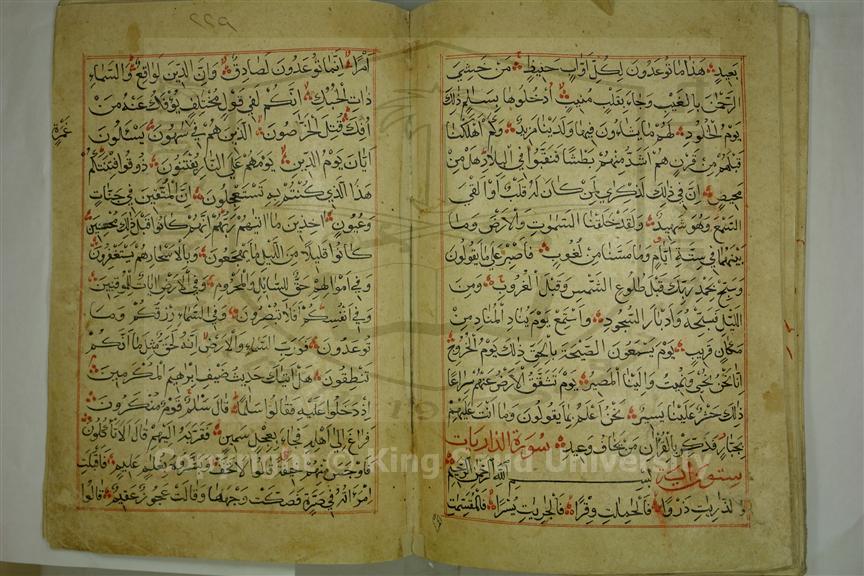 بعيد هذا ما توعدون لكل اواب حفيظ من خشى
الرحمن بالغيب وجاء بقلب منيب ادخلوها بسلم ذلك
يوم الخلود لهم ما يشاءون فيها ولدينا مزيد وكم اهلكنا
قبلهم من قرن هم اشد منهم بطشا فنقبوا في البلاد هل من
محيص ان في ذلك لذكرى لمن كان له قلب او القى
السمع وهو شهيد ولقد خلقنا السموت والارض وما
بينهما في ستة ايام وما مسنا من لغوب فاصبر على ما يقولون
وسبح بحمد ربك قبل طلوع الشمس وقبل الغروب ومن
الليل فسبحه وادبار السجود واستمع يوم يناد المناد من
مكان قريب يوم يسمعون الصيحة بالحق ذلك يوم الخروج
انا نحن نحيي ونميت والينا المصير يوم تشقق الارض عنهم سراعا
ذلك حشر علينا يسير نحن اعلم بما يقولون وما انت عليهم
بجبار فذكر بالقران من يخاف وعيد سورة الذاريات
ستون اية بسم الله الرحمن الرحيم
والذريت ذروا فالحملت وقرا فالجريت يسرا فالمقسمت
٢٢٩
امرا انما توعدون لصادق وان الدين لواقع والسماء
ذات الحبك انكم لفي قول مختلف يؤفك عنه من
افك قتل الخراصون الذين هم في ساهون يسئلون
غمرة
ايان يوم الدين يوم هم على النار يفتنون ذوقوا فتنتكم
هذا الذي كنتم به تستعجلون ان المتقين في جنات
وعيون اخذين ما اتيهم ربهم انهم كانوا قبل ذلك محسنين
كانوا قليلا من الليل ما يهجعون وبالاسحار هم يستغفرون
وفي اموالهم حق للسائل والمحروم وفي الارض ايات للموقنين
وفي انفسكم افلا تبصرون وفي السماء رزقكم وما
توعدون فورب السماء والارض انه لحق مثل ما انكم
تنطقون هل اتيك حديث ضيف ابرهيم المكرمين
اذ دخلوا عليه فقالوا سلاما قال سلم قوم منكرون
فراغ الى اهله فجاء بعجل سمين فقربه اليهم قال الا تاكلون
فاوجس منهم خيفة قالوا لا تخف وبشروه بغلم عليم فاقبلت
امراته في صرة فصكت وجهها وقالت عجوز عقيم قالوا
Copyright © King Saud University